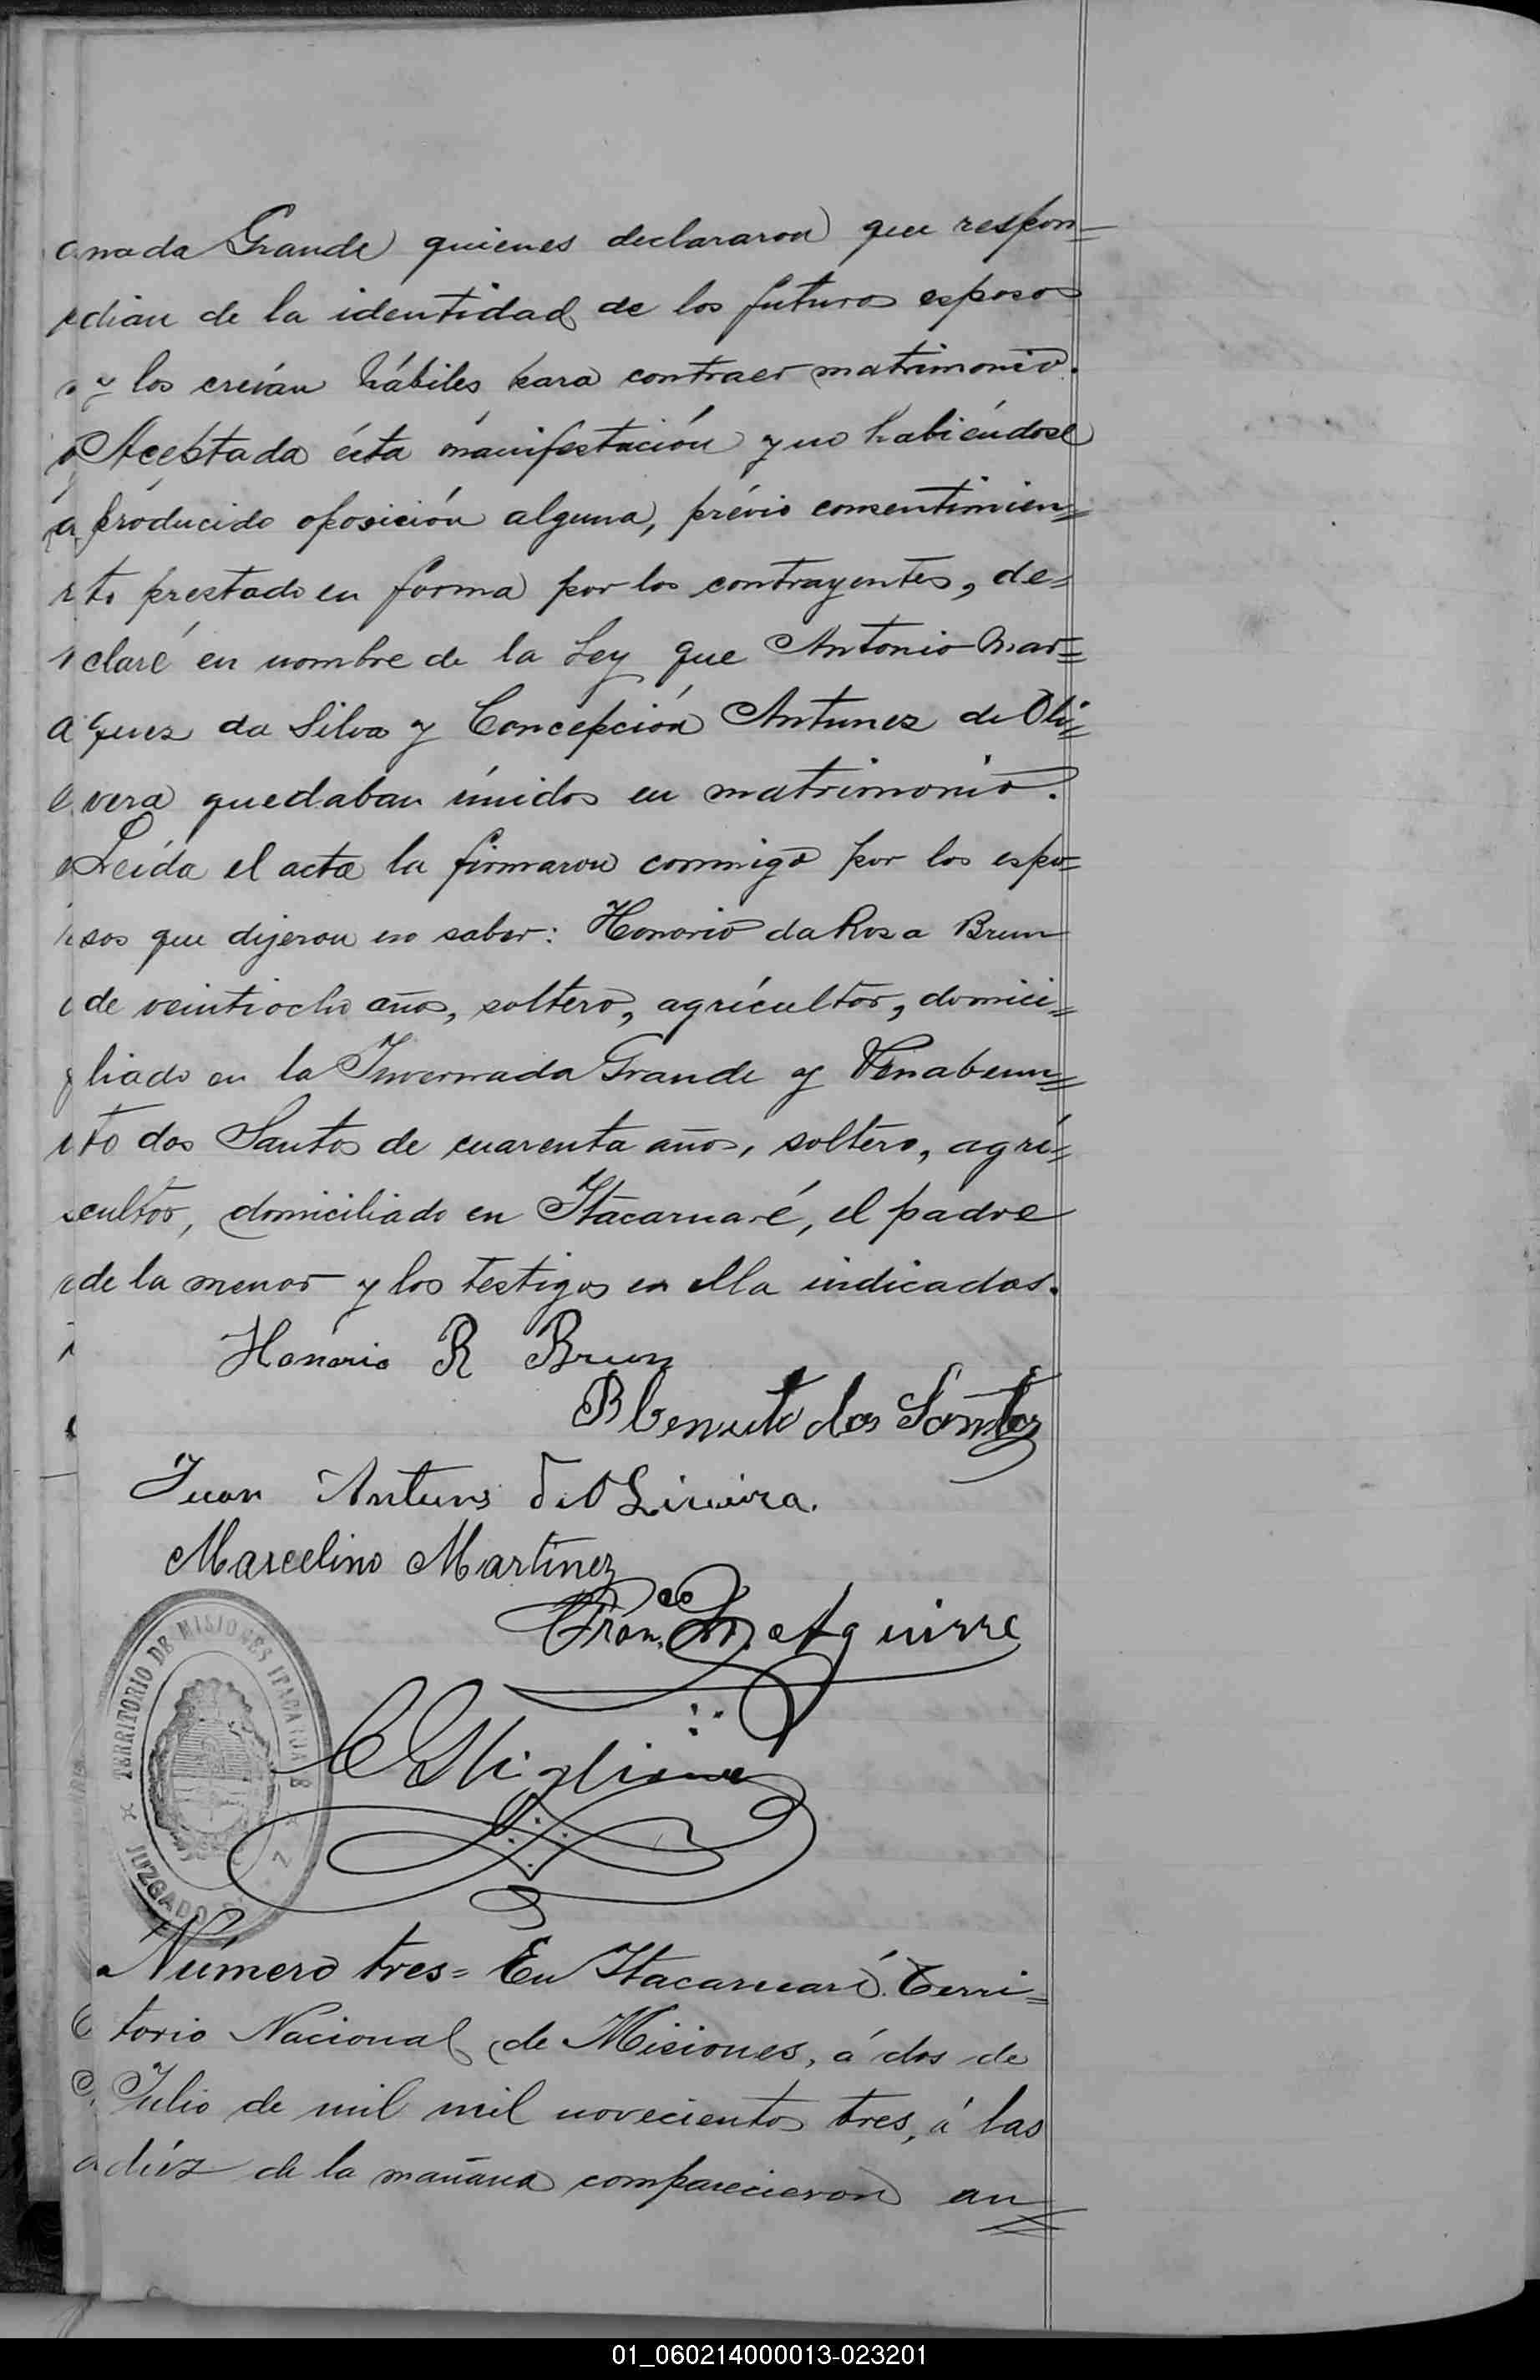 nada Grande quienes declararon que respon-
dian de la identidad de los futuros esposos
y los creían hábiles para contraer matrimonio.
Aceptada ésta manifestación y no habiéndose
producido oposición alguna, prévio consentimien=
to prestado en forma por los contrayentes, de=
claré en nombre de la Ley que Antonio Mar=
quez da Silva y Concepción Antunez de Oli=
vera quedaban únidos en matrimonio.
Leída el acta la firmaron conmigo por los espo=
sos que dijeron no saber: Honorio da Rosa Brum
de veintiocho años, soltero, agricultor, domici=
liado en la Invernada Grande y Venabenu=
to dos Santos de cuarenta años, soltero, agri=
cultor, domiciliado en Itacaruaré, el padre
de la menor y los testigos en ella indicados.
Honorio R Brum
dos Santos
Juan Antuns
Marcelino Martinez
Aguirre
TERRITORIO DE MISIONES
JUZGADO
Número tres= En Itacaruaré. Terri=
torio Nacional de Misiones, á dos de
Julio de mil mil novecientos tres, á las
diéz de la mañana comparecieron an=
01_060214000013-023201